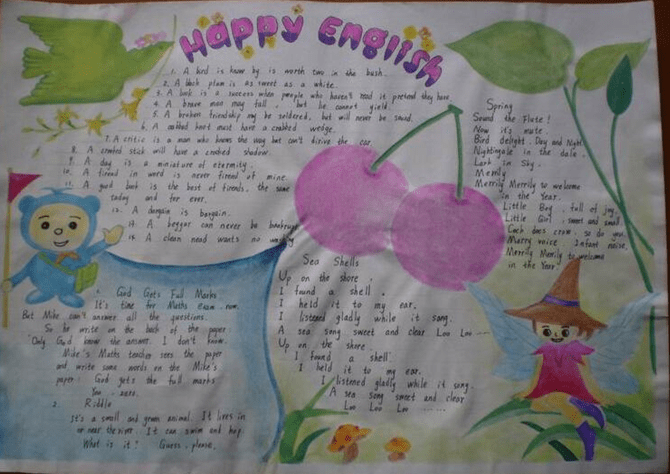 Happy English
1. A bird is know by is worth two in the bush.
2. A black plum is as sweet as a white.
3. A book is a success when people who haven't read it pretend they have.
4. A brave man may fall, but he cannot yield.
5. A broken friendship may be soldered, but will never be sound.
6. A crabbed knot must have a crabbed wedge.
7. A critic is a man who knows the way but can't drive the car.
8. A crooked stick will have a crooked shadow.
9. A day is a miniature of eternity.
10. A friend in word is never friend of mine.
11. A good book is the best of friends, the same
today and for ever.
12. A bargain is bargain.
13. A beggar can never be bankrupt
14. A clean hand wants no washing
1. God Gets Full Marks
It's time for Maths exam now.
But Mike can't answer all the questions.
So he write on the back of the paper
"Only God know the answer. I don't know.
Mike's Maths teacher sees the paper
and write some words on the Mike's
paper: God gets the full marks
You, zero.
2. Riddle
It's a small and green animal. It lives in
or near the river. It can swim and hop.
What is it? Guess, please.
Sea Shells
Up on the shore,
I found a shell,
I held it to my ear.
I listened gladly while it song.
A sea song sweet and clear Loo Loo ---
Up on the shore
I found a shell
I held it to my ear.
I listened gladly while it song.
A sea song sweet and clear
Loo Loo Loo .......
Spring
Sound the Flute!
Now it's mute.
Bird delight, Day and Night
Nightingale in the dale.
Lark in Sky.
Merrily
Merrily Merrily to welcome
in the Year.
Little Boy, full of joy,
Little Girl, sweet and small
Cock does crow, so do you.
Merry voice, Infant noise,
Merrily Merrily to welcome
in the Year.